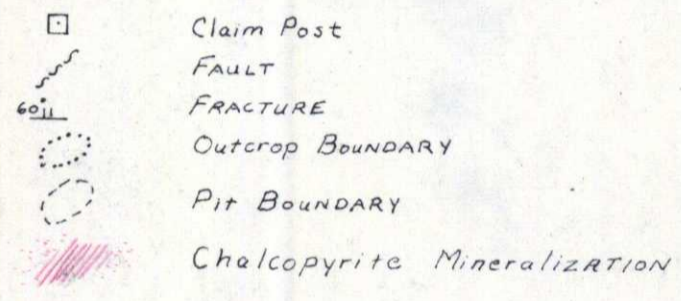 Claim Post
FAULT
60 FRACTURE
Outcrop BOUNDARY
Pit BOUNDARY
Chalcopyrite MineralizATION